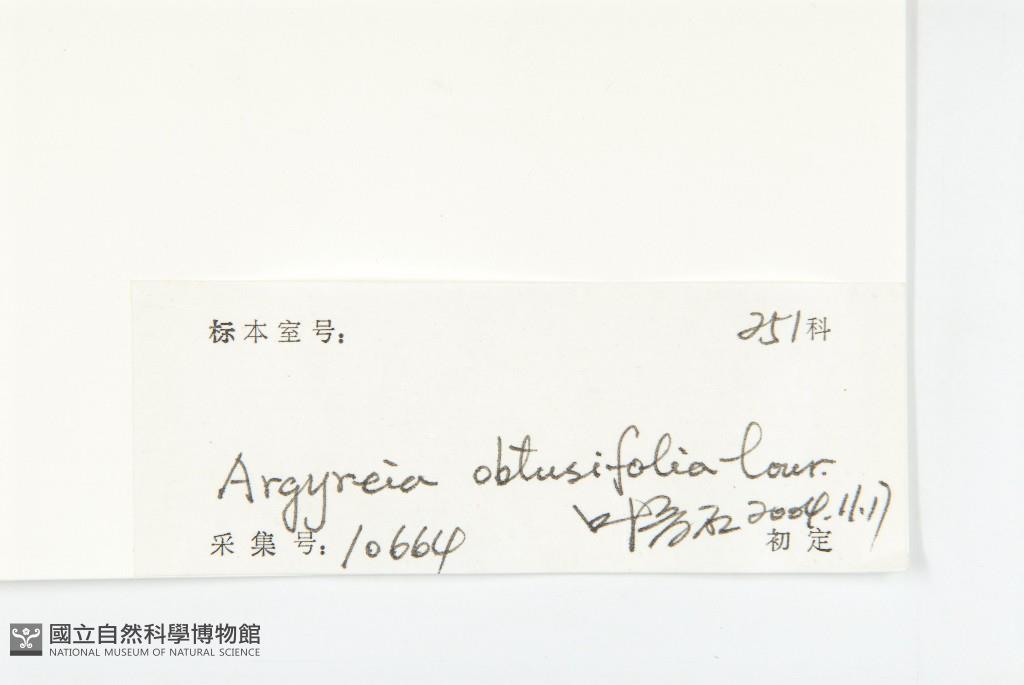 标本室号: 251科
Argyreia obtusifolia Lour.
叶 2004.11.17
采集号: 10664 初定
國立自然科學博物館
NATIONAL MUSEUM OF NATURAL SCIENCE